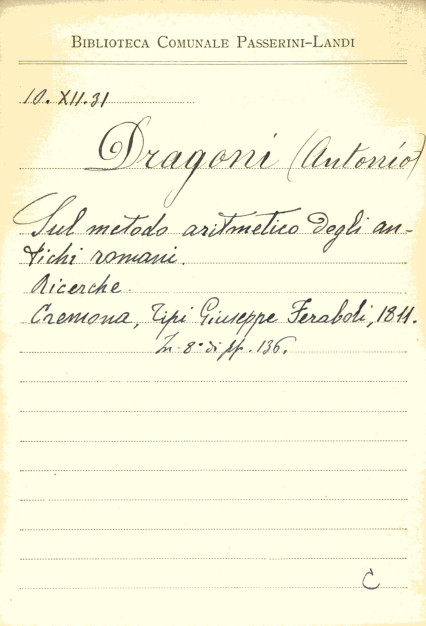 BIBLIOTECA COMUNALE PASSERINI-LANDI
10. XII. 31
Dragoni (Antonio)
Sul metodo aritmetico degli an-
tichi romani.
Ricerche.
Cremona, Tipi Giuseppe Feraboli, 1811.
In-8° di pp. 136.
C